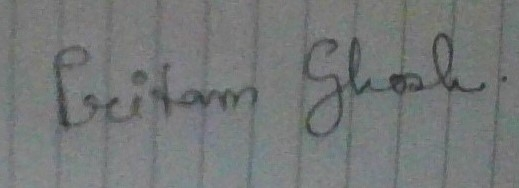 Pritam Ghosh.